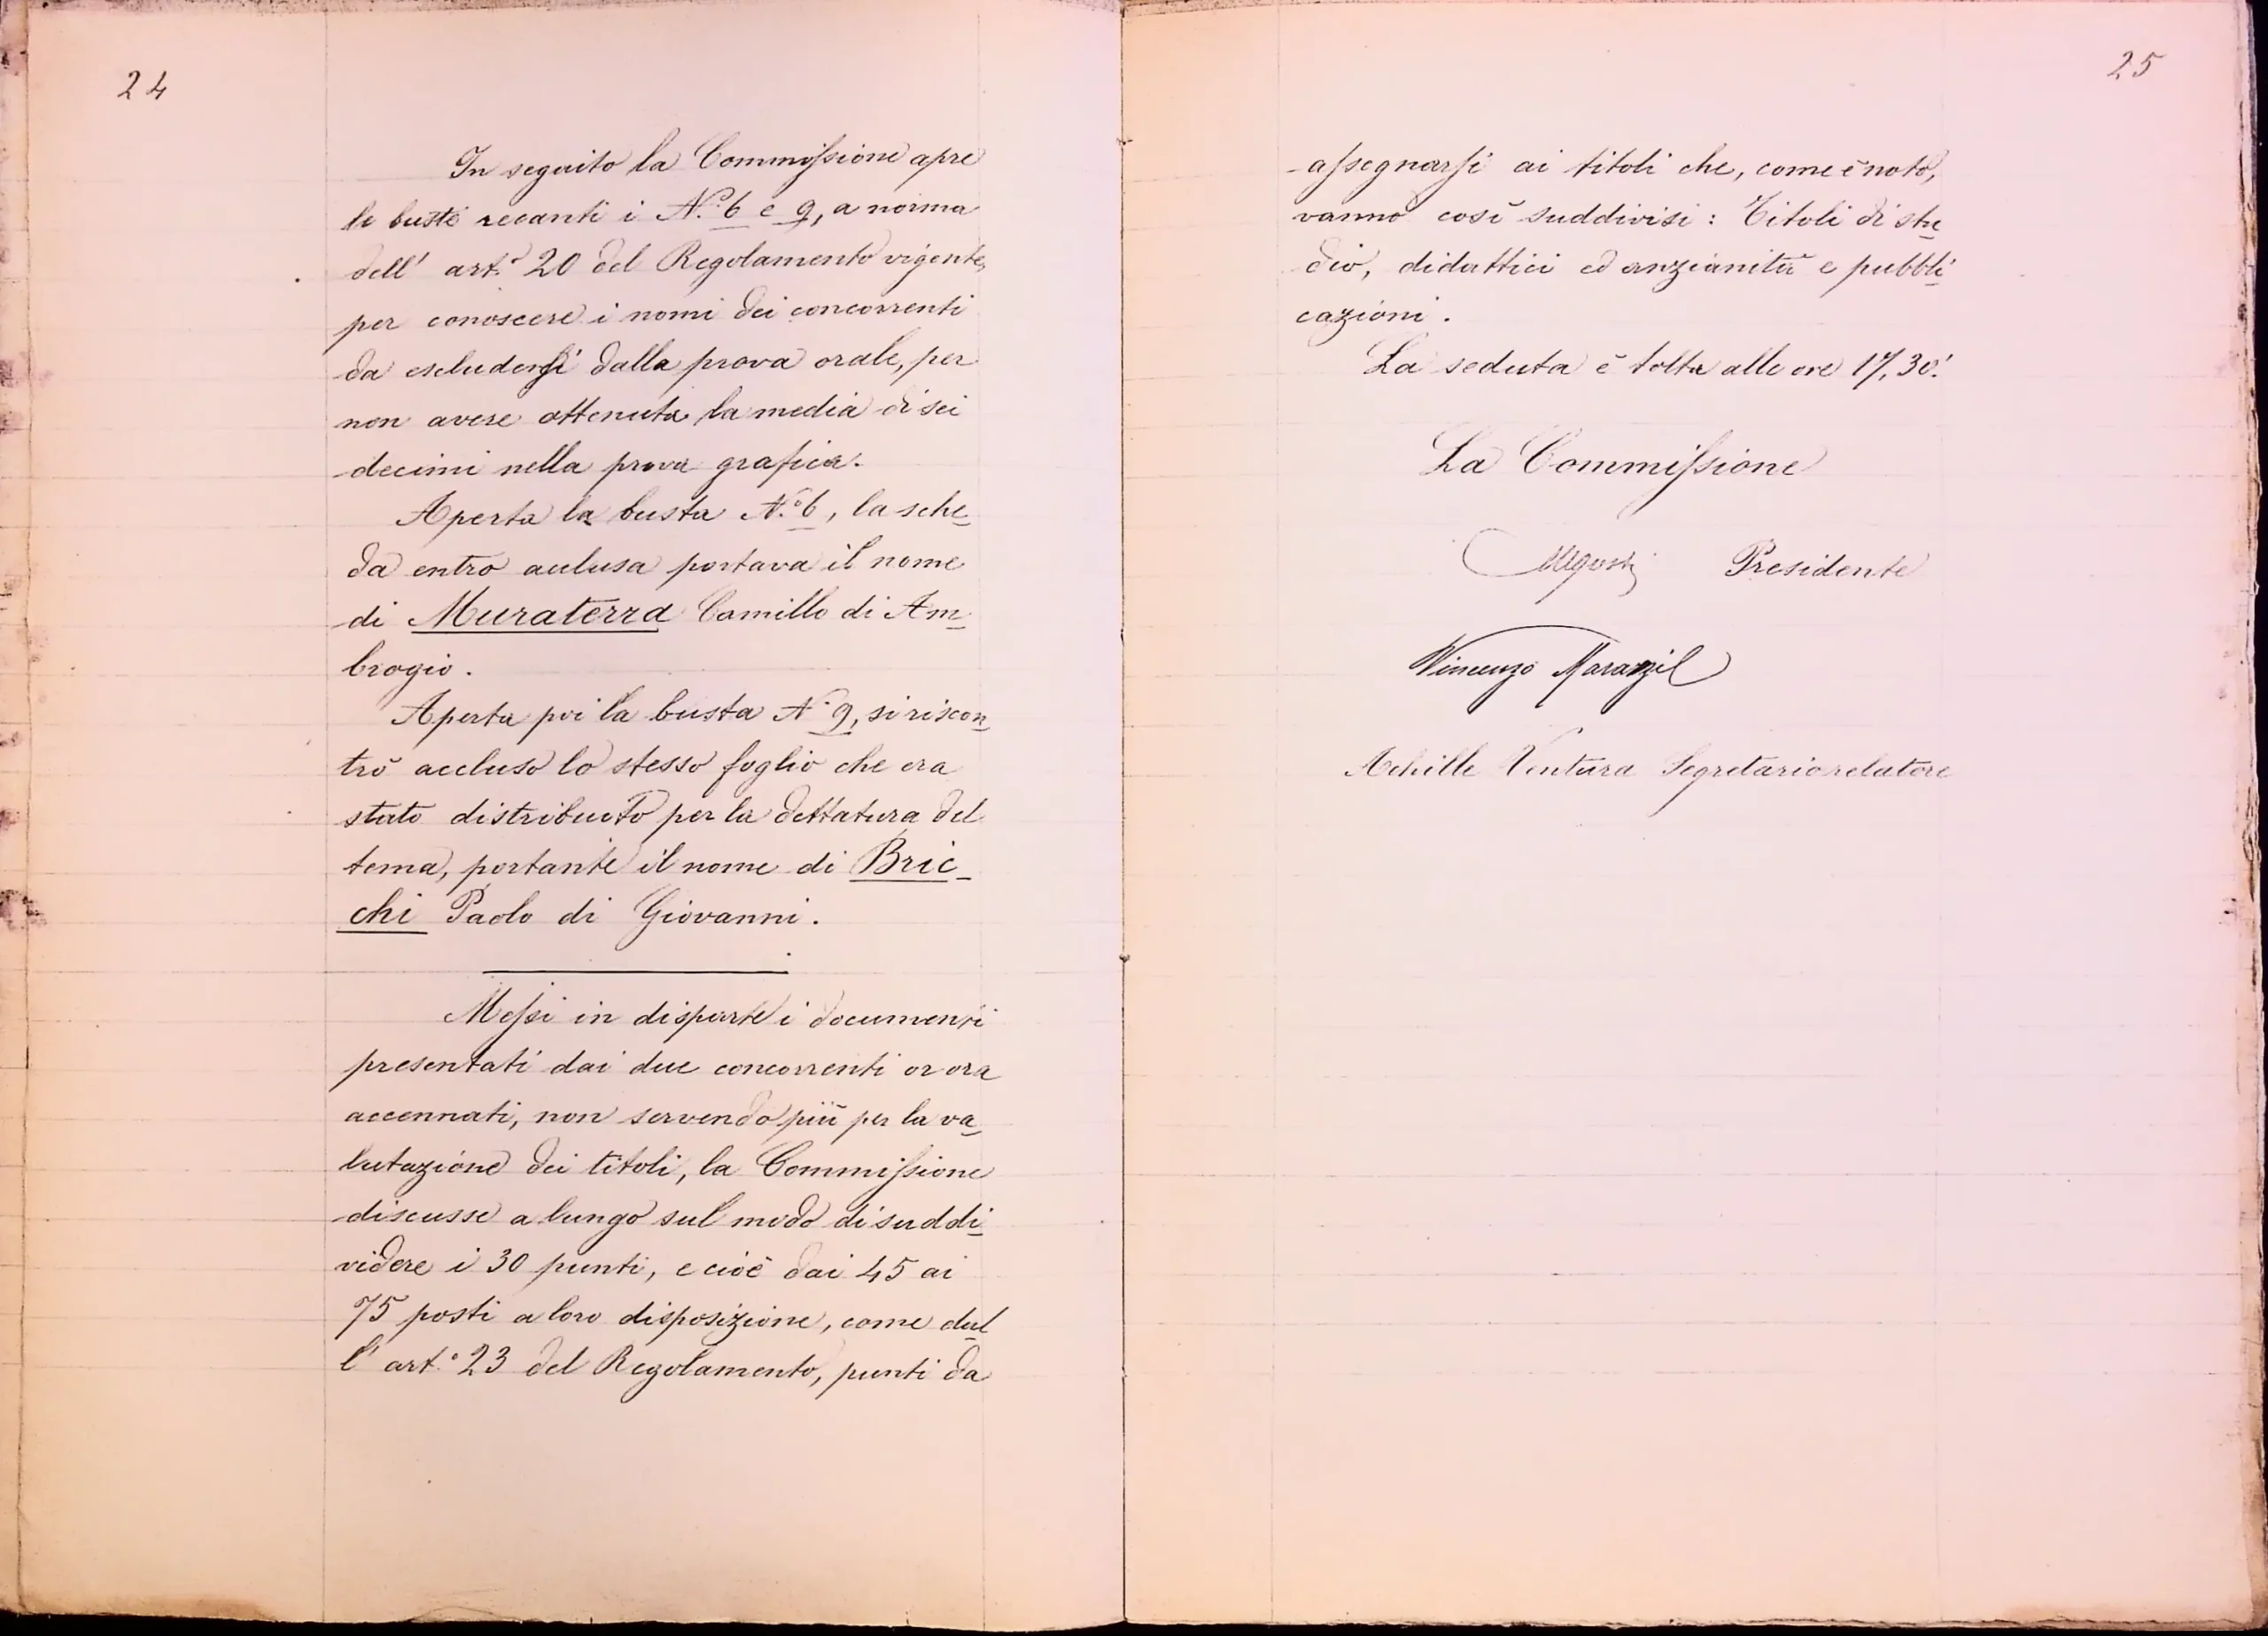 24
In seguito la Commissione apre
le buste recanti i N.° 6 e 9, a norma
dell' art.° 20 del Regolamento vigente,
per conoscere i nomi dei concorrenti
da escludersi dalla prova orale, per
non avere ottenuta la media di sei
decimi nella prova grafica.
Aperta la busta N.° 6, la sche-
da entro acclusa portava il nome
di Muraterra Camillo di Am-
brogio.
Aperta poi la busta N° 9, si riscon-
trò accluso lo stesso foglio che era
stato distribuito per la dettatura del
tema, portante il nome di Bric-
chi Paolo di Giovanni.
Messi in disparte i documenti
presentati dai due concorrenti or ora
accennati, non servendo più per la va-
lutazione dei titoli, la Commissione
discusse a lungo sul modo di suddi-
videre i 30 punti, e cioè dai 45 ai
75 posti a loro disposizione, come dal
l' art.° 23 del Regolamento, punti da
25
assegnarsi ai titoli che, come è noto,
vanno così suddivisi: Titoli di stu-
dio, didattici ed anzianità e pubbli-
cazioni.
La seduta è tolta alle ore 17,30'.
La Commissione
Presidente
Vincenzo
Achille Ventura Segretario relatore